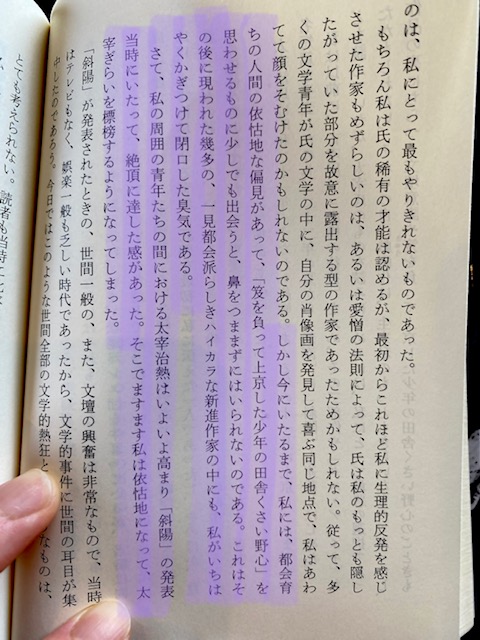 のは、私にとって最もやりきれないものであった。
もちろん私は氏の稀有の才能は認めるが、最初からこれほど私に生理的反発を感じ
させた作家もめずらしいのは、あるいは愛憎の法則によって、氏は私のもっとも隠し
たがっていた部分を故意に露出する型の作家であったためかもしれない。従って、多
くの文学青年が氏の文学の中に、自分の肖像画を発見して喜ぶ同じ地点で、私はあわ
てて顔をそむけたのかもしれないのである。しかし今にいたるまで、私には、都会育
ちの人間の依怙地な偏見があって、「笈を負って上京した少年の田舎くさい野心」を
思わせるものに少しでも出会うと、鼻をつままずにはいられないのである。これはそ
の後に現われた幾多の、一見都会派らしきハイカラな新進作家の中にも、私がいちは
やくかぎつけて閉口した臭気である。
さて、私の周囲の青年たちの間における太宰治熱はいよいよ高まり、「斜陽」の発表
当時にいたって、絶頂に達した感があった。そこでますます私は依怙地になって、太
宰ぎらいを標榜するようになってしまった。
「斜陽」が発表されたときの、世間一般の、また、文壇の興奮は非常なもので、当時
はテレビもなく、娯楽一般も乏しい時代であったから、文学的事件に世間の耳目が集
中したのであろう。今日ではこのような世間全部の文学的熱狂と
なものは、
とても考えられない。読者も当時に比